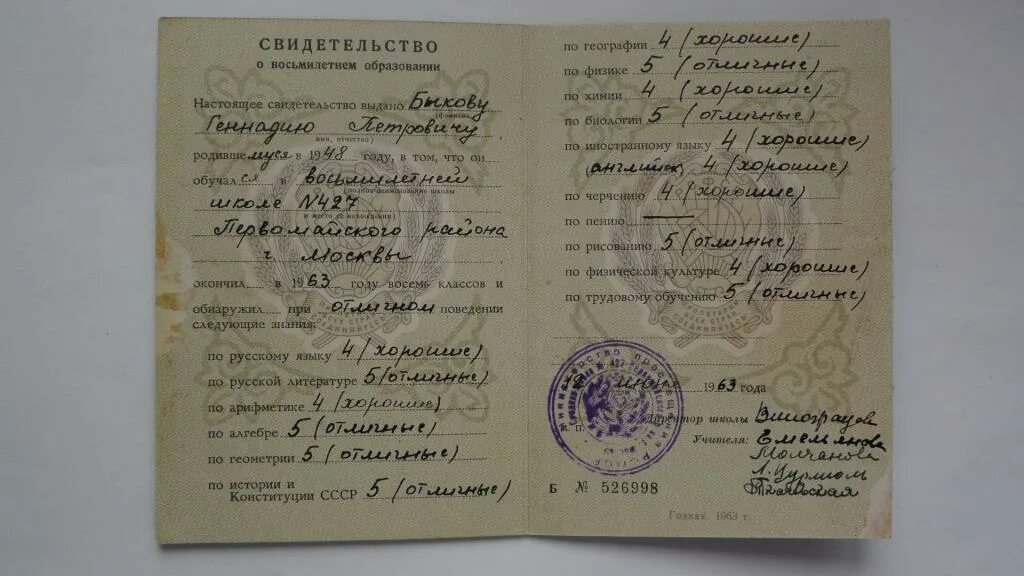 СВИДЕТЕЛЬСТВО
о восьмилетнем образовании
Настоящее свидетельство выдано Быкову
(фамилия,
Геннадию Петровичу
имя, отчество)
родившемуся в 1948 году, в том, что он
обучался в восьмилетней
(полное наименование школы
школе №427
и место ее нахождения)
Первомайского района
г. Москвы
окончил в 1963 году восемь классов и
обнаружил при отличном поведении
следующие знания:
по русскому языку 4 (хорошие)
по русской литературе 5 (отличные)
по арифметике 4 (хорошие)
по алгебре 5 (отличные)
по геометрии 5 (отличные)
по истории и
Конституции СССР 5 (отличные)
по географии 4 (хорошие)
по физике 5 (отличные)
по химии 4 (хорошие)
по биологии 5 (отличные)
по иностранному языку 4 (хорошие)
(английск 4 (хорошие)
по черчению 4 (хорошие)
по пению —
по рисованию 5 (отличные)
по физической культуре 4 (хорошие)
по трудовому обучению 5 (отличные)
1963 года
Директор школы Виноградова
Учителя: Емельянова
Молчанова
Б № 526998
Гознак. 1963 г.